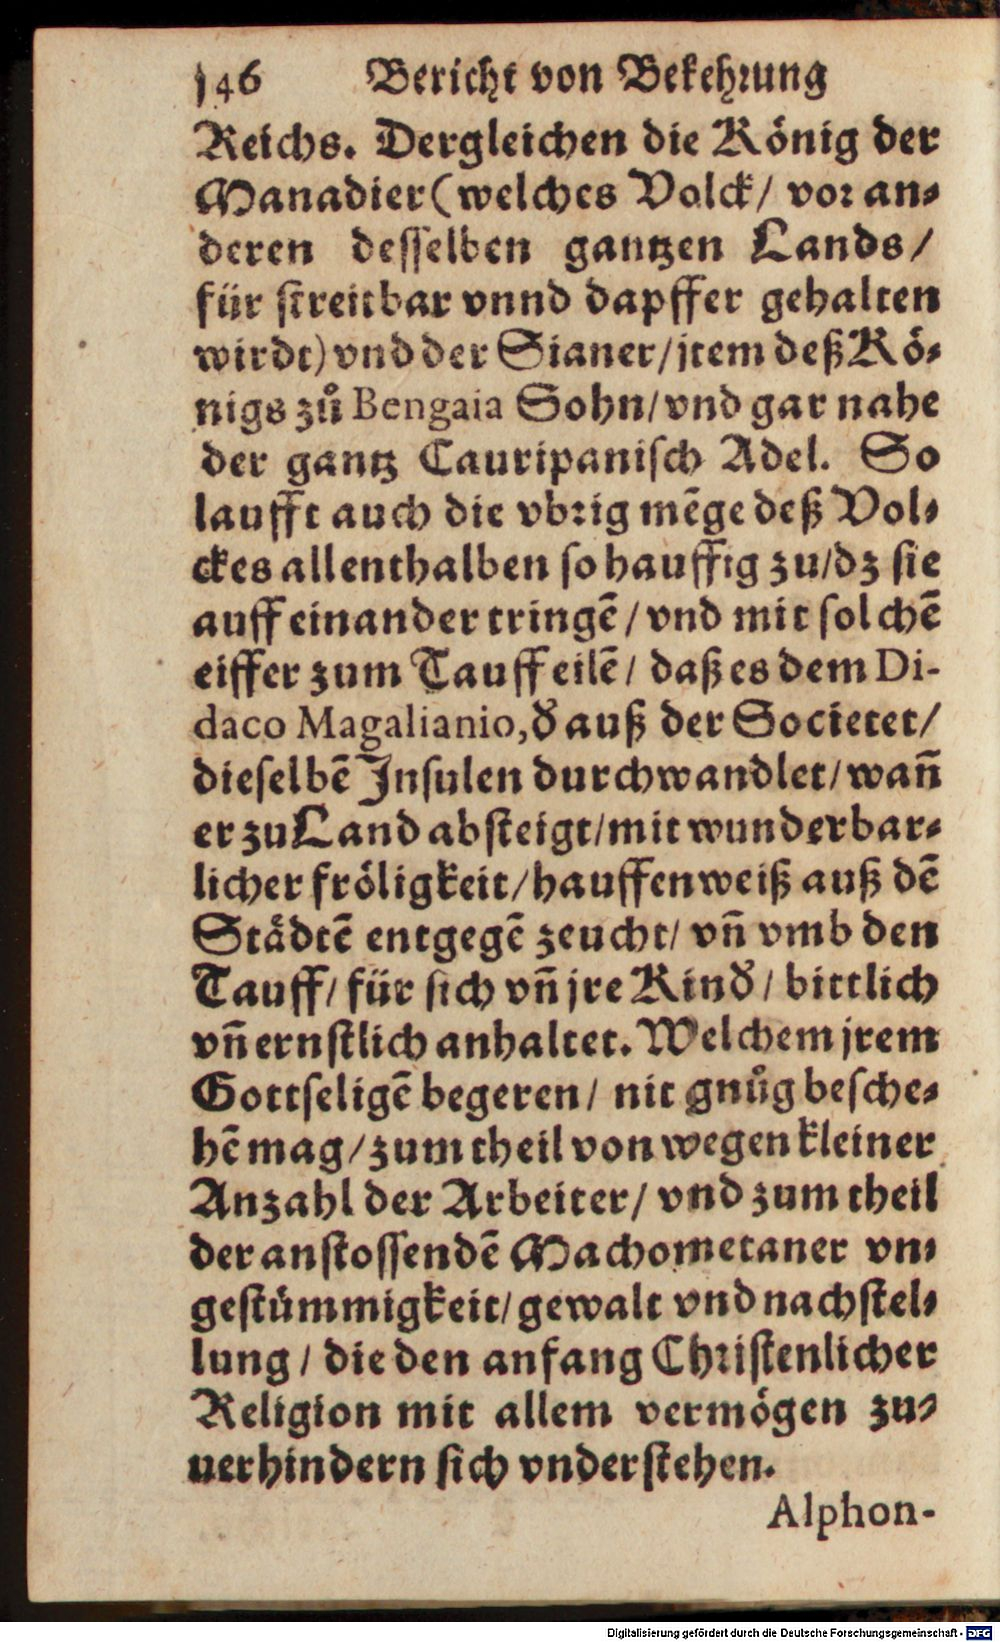 146 Bericht von Bekehrung
Reichs. Dergleichen die König der
Manadier (welches Volck / vor an-
deren desselben gantzen Lands /
für streitbar vnnd dapffer gehalten
wirdt) vnd der Sianer / jtem deß Kö-
nigs zů Bengaia Sohn / vnd gar nahe
der gantz Cauripanisch Adel. So
laufft auch die vbrig mẽge deß Vol-
ckes allenthalben so hauffig zu / dz sie
auff einander tringẽ / vnd mit solchẽ
eiffer zum Tauff eilẽ / daß es dem Di-
daco Magalianio, ð auß der Societet /
dieselbẽ Insulen durchwandlet / wañ
er zu Land absteigt / mit wunderbar-
licher fröligkeit / hauffenweiß auß dẽ
Städtẽ entgegẽ zeucht / vñ vmb den
Tauff / für sich vñ jre Kinð / bittlich
vñ ernstlich anhaltet. Welchem jrem
Gottseligẽ begeren / nit gnůg besche-
hẽ mag / zum theil von wegen kleiner
Anzahl der Arbeiter / vnd zum theil
der anstossendẽ Machometaner vn-
gestümmigkeit / gewalt vnd nachstel-
lung / die den anfang Christenlicher
Religion mit allem vermögen zu-
uerhindern sich vnderstehen.
Alphon-
Digitalisierung gefördert durch die Deutsche Forschungsgemeinschaft - DFG